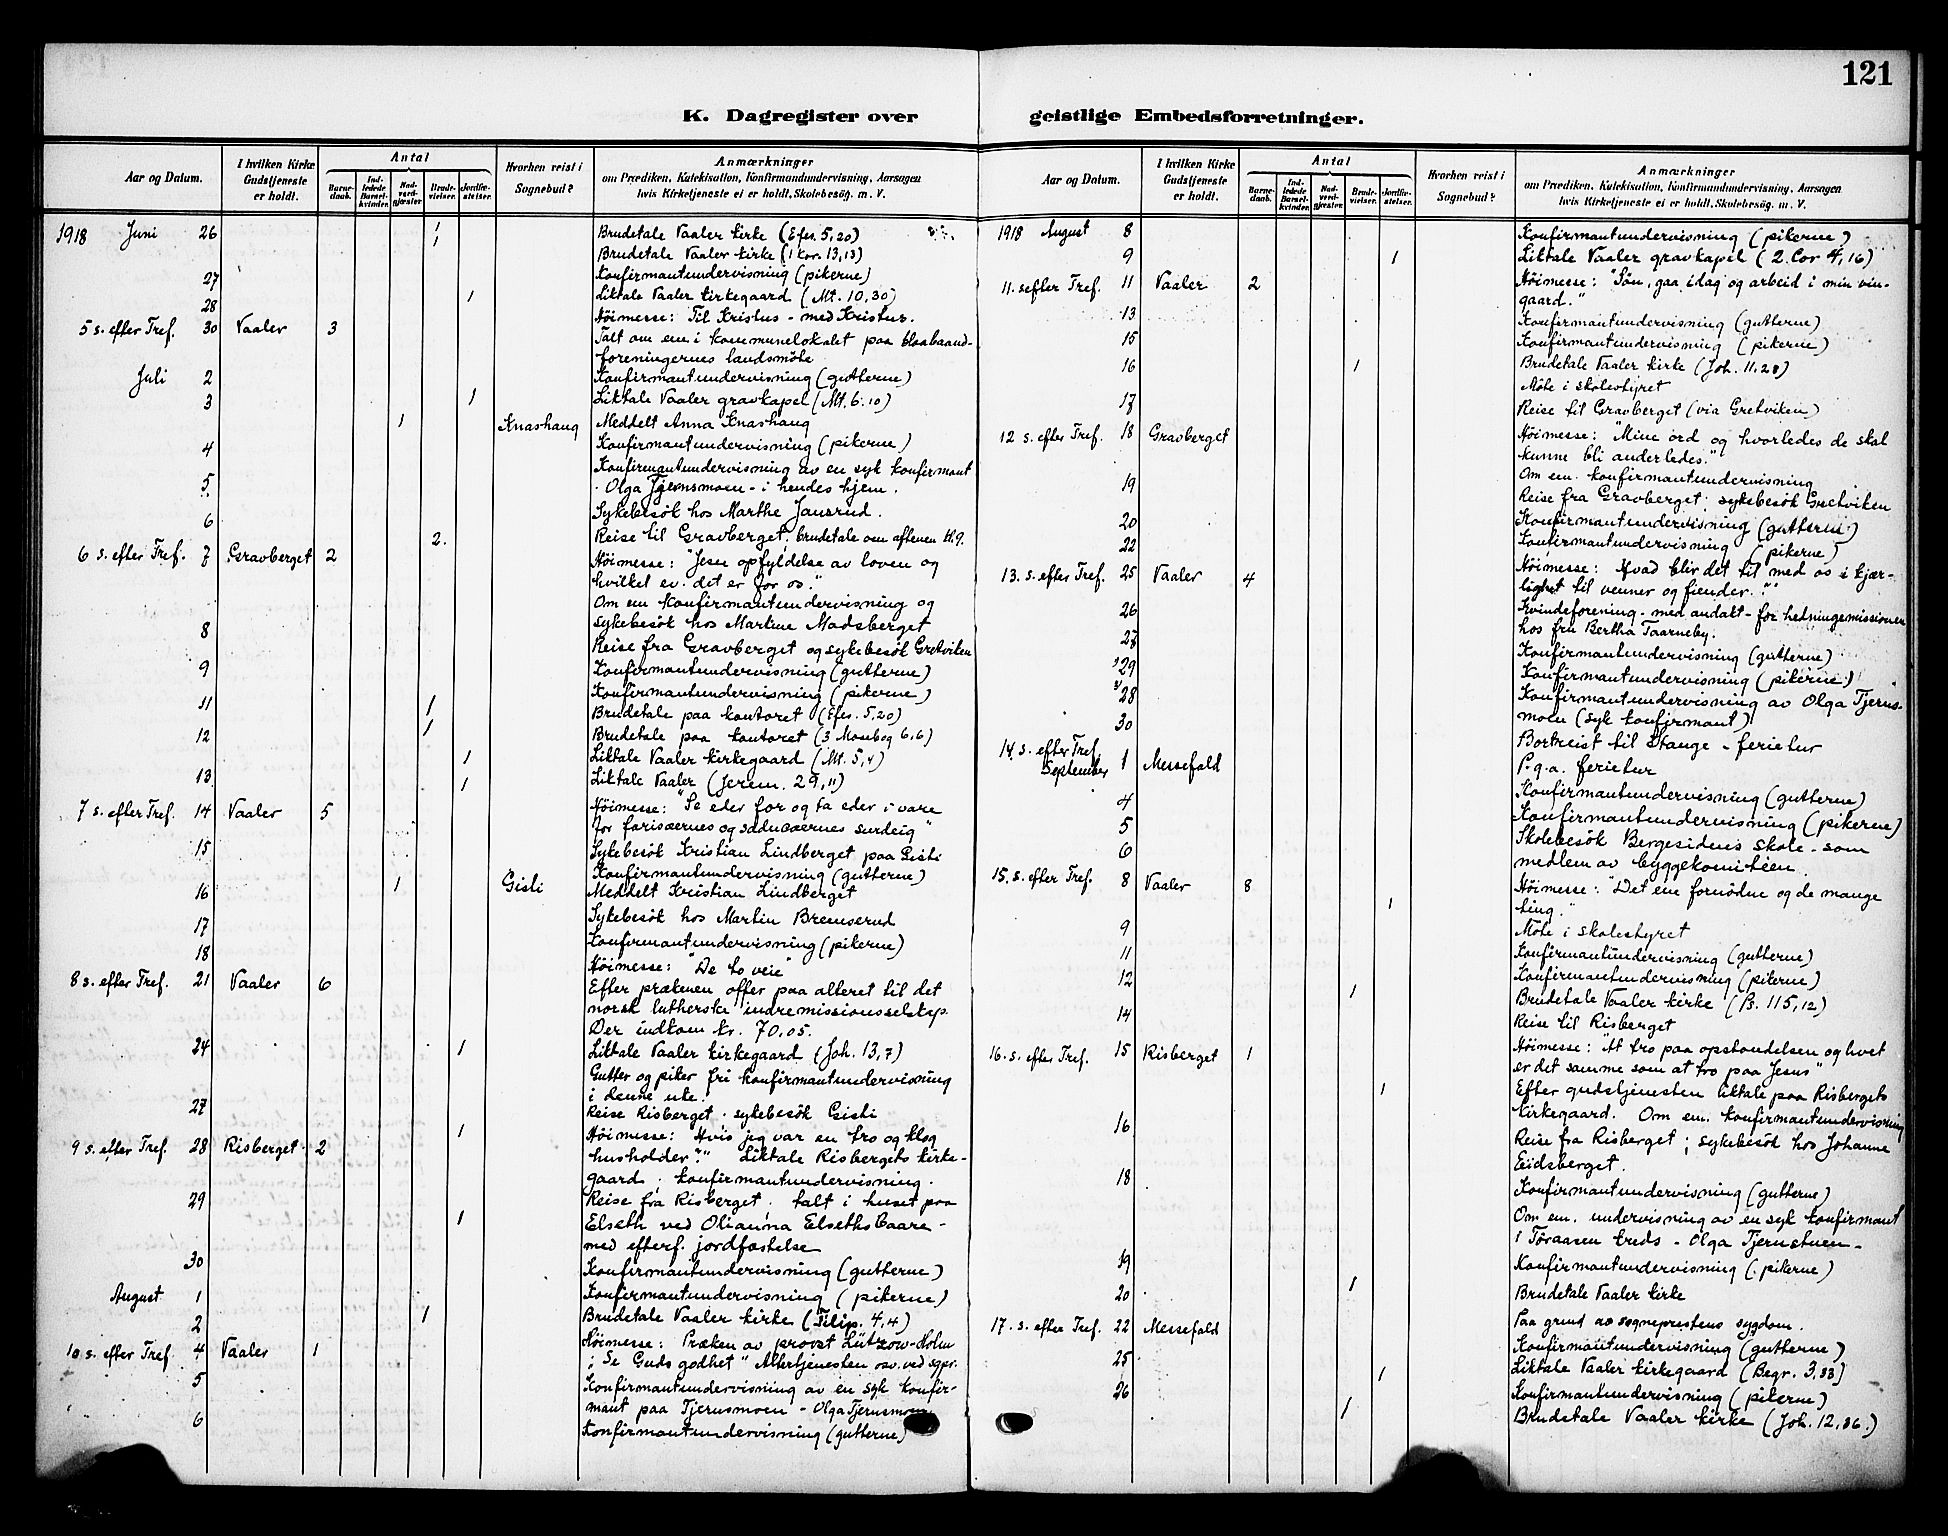 121
K. Dagregister over geistlige Embedsforretninger.
Aar og Datum. I hvilken Kirke Gudstjeneste er holdt. Antal Barnedaab. Indledede Barselkvinder. Nadverdgjæster. Brudevielser. Jordfæstelser. Hvorhen reist i Sognebud? Anmærkninger om Prædiken, Katekisation, Konfirmandundervisning, Aarsagen hvis Kirketjeneste ei er holdt, Skolebesøg. m. V.
1918 Juni 26 1 Brudetale Vaaler kirke (Efes. 5,20)
1 Brudetale Vaaler kirke (1 Kor. 13,13)
27 Konfirmantundervisning (pikerne)
28 1 Liktale Vaaler kirkegaard (Mt. 10,30)
5 s. efter Tref. 30 Vaaler 3 Höimesse: Til Kristus - med Kristus.
Talt om em i kommunelokalet paa blaabaand-
foreningernes landsmöte
Juli 2 Konfirmantundervisning (gutterne)
3 1 Liktale Vaaler gravkapel (Mt. 6.10)
1 Knashaug Meddelt Anna Knashaug
4 Konfirmantundervisning (pikerne)
Konfirmantundervisning av en syk konfirmant
5. - Olga Tjernsmoen - i hendes hjem.
6 Sykebesök hos Marthe Jansrud.
2. Reise til Gravberget; brudetale om aftenen kl. 9.
6 s. efter Tref. 7 Gravberget 2 Höimesse: "Jesu opfyldelse av loven og
hvilket ev. det er for os."
Om em konfirmantundervisning og
8 sykebesök hos Martine Madsberget
Reise fra Gravberget og sykebesök Gretviken
9 Konfirmantundervisning (gutterne)
11 Konfirmantundervisning (pikerne)
1 Brudetale paa kontoret (Efes. 5,20)
12 1 Brudetale paa kontoret (3 Mosebog 6,6)
1 Liktale Vaaler kirkegaard (Mt. 5,4)
13 1 Liktale Vaaler (Jerem. 29,11)
7 s. efter Tref. 14 Vaaler 5 Höimesse: "Se eder for og ta eder i vare
for farisæernes og sadducæernes surdeig"
15 Sykebesök Kristian Lindberget paa Gisti
Konfirmantundervisning (gutterne)
16 1 Gisti Meddelt Kristian Lindberget
17 Sykebesök hos Martin Bremserud
18 Konfirmantundervisning (pikerne)
Höimesse: "De to veie"
8 s. efter Tref. 21 Vaaler 6 Efter prækenen offer paa alteret til det
norsk lutherske indremissionsselskap.
Der indkom kr. 70,05.
24 1 Liktale Vaaler kirkegaard (Joh. 13,7)
Gutter og piker fri konfirmantundervisning
i denne uke.
27 Reise Risberget. sykebesök Gisti
9 s. efter Tref. 28 Risberget 2 1 Höimesse: "Hvis jeg var en tro og klog
husholder?" Liktale Risbergets kirke-
gaard; konfirmantundervisning.
29 Reise fra Risberget; talt i huset paa
1 Elseth ved Olianna Elseths baare -
med efterf. jordfæstelse
30 Konfirmantundervisning (gutterne)
August 1 Konfirmantundervisning (pikerne)
2 1 Brudetale Vaaler kirke (Filip. 4,4)
10 s. efter Tref. 4 Vaaler 1 Höimesse: Præken av provst Lützow-Holm
; Se Guds godhet" Altertjenesten osv. ved sgpr.
5 Konfirmantundervisning av en syk konfir-
mant paa Tjernsmoen - Olga Tjernsmoen
6 Konfirmantundervisning (gutterne)
Aar og Datum. I hvilken Kirke Gudstjeneste er holdt. Antal Barnedaab. Indledede Barselkvinder. Nadverdgjæster. Brudevielser. Jordfæstelser. Hvorhen reist i Sognebud? Anmærkninger om Prædiken, Katekisation, Konfirmandundervisning, Aarsagen hvis Kirketjeneste ei er holdt, Skolebesøg. m. V.
1918 August 8 Konfirmantundervisning (pikerne)
9 1 Liktale Vaaler gravkapel (2. Cor 4,16)
11. s efter Tref. 11 Vaaler 2 Höimesse: "Sön, gaa idag og arbeid i min vin-
gaard."
13 Konfirmantundervisning (gutterne)
15 Konfirmantundervisning (pikerne)
16 1 Brudetale Vaaler kirke (Joh. 11,28)
Möte i skolestyret
17 Reise til Gravberget (via Gretviken)
12 s. efter Tref. 18 Gravberget Höimesse: "Mine ord og hvorledes de skal
kunne bli anderledes."
Om em. konfirmantundervisning
19 Reise fra Gravberget; sykebesök Gretviken
20 Konfirmantundervisning (gutterne)
22 Konfirmantundervisning (pikerne)
13. s. efter Tref. 25 Vaaler 4 Höimesse: Hvad blir det til med os i kjær-
lighet til venner og fiender."
26 Kvindeforening - med andakt - for hedningemissionen
27 hos fru Bertha Taarneby.
Konfirmantundervisning (gutterne)
29 Konfirmantundervisning (pikerne)
28 Konfirmantundervisning av Olga Tjerns-
moen (syk konfirmant)
30 Bortreist til Stange - ferietur
14. s. efter Tref. September 1 Messefald P. g. a. ferietur
4 Konfirmantundervisning (gutterne)
5 Konfirmantundervisning (pikerne)
6 Skolebesök Bergesidens skole - som
medlem av byggekomitéen.
15. s. efter Tref. 8 Vaaler 8 Höimesse: "Det ene fornödne og de mange
1 ting."
9 Möte i skolestyret
11 Konfirmantundervisning (gutterne)
12 Konfirmantundervisning (pikerne)
1 Brudetale Vaaler kirke (Ps. 115,12)
14 Reise til Risberget
16. s. efter Tref. 15 Risberget 1 Höimesse: "At tro paa opstandelsen og livet
er det samme som at tro paa Jesus"
1 Efter gudstjenesten liktale paa Risbergets
kirkegaard. Om em. konfirmantundervisning
16 Reise fra Risberget; sykebesök hos Johanne
Eidsberget.
18 Konfirmantundervisning (gutterne)
Om em. undervisning av en syk konfirmant
i Töraasen kreds - Olga Tjernstuen -
19 Konfirmantundervisning (pikerne)
20 1 Brudetale Vaaler kirke
17. s. efter Tref. 22 Messefald Paa grund av sogneprestens sygdom.
Konfirmantundervisning (gutterne)
25 1 Liktale Vaaler kirkegaard (Begr. 3,33)
26 Konfirmantundervisning (pikerne)
1 Brudetale Vaaler kirke (Joh. 12,36.)